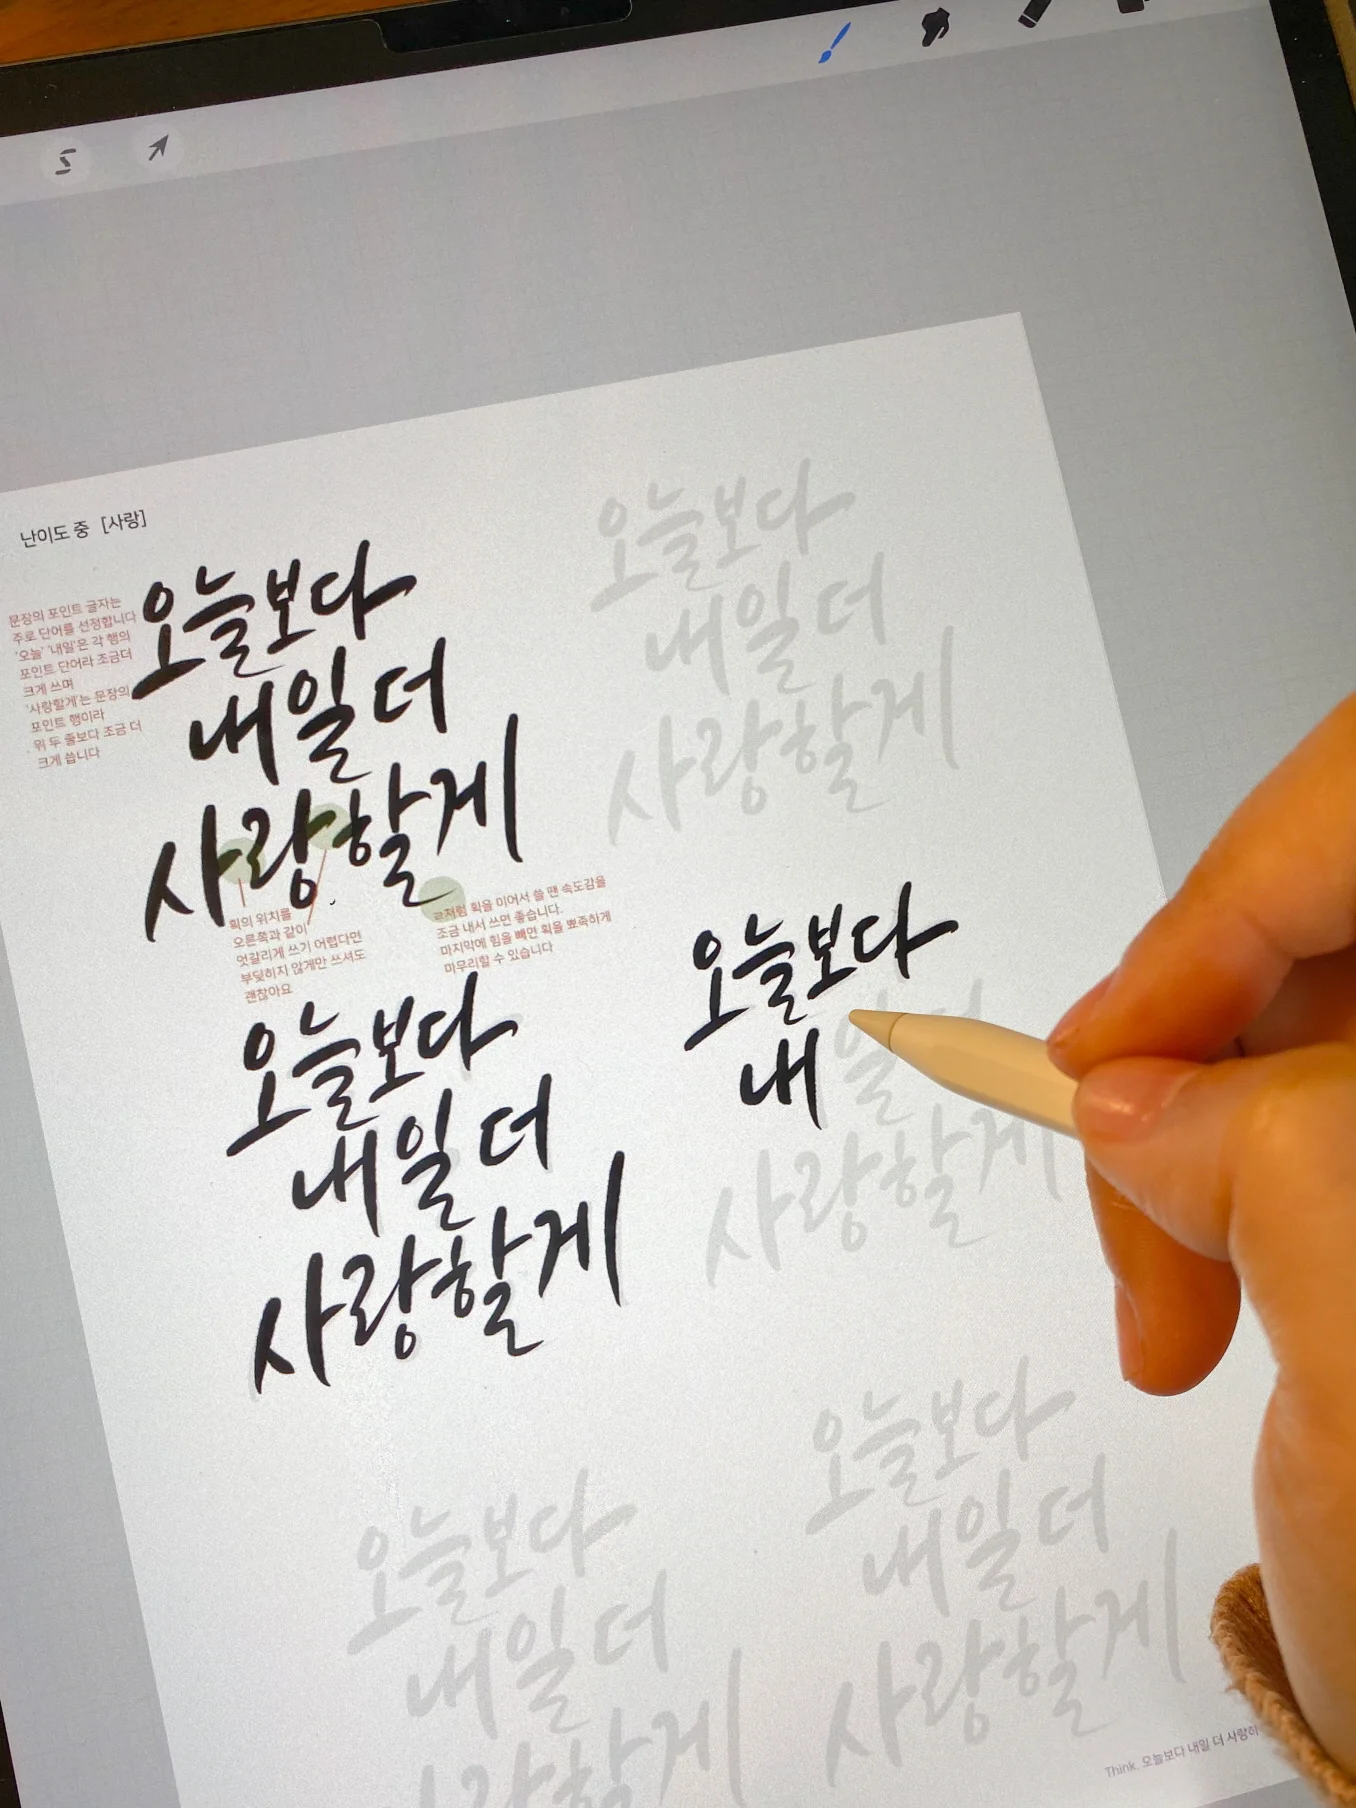 난이도 중 [사랑]
오늘보다
내일 더
사랑할게
문장의 포인트 글자는
주로 단어를 선정합니다
'오늘' '내일'은 각 행의
포인트 단어라 조금더
크게 쓰며
'사랑할게'는 문장의
포인트 행이라
위 두 줄보다 조금 더
크게 씁니다
획의 위치를
오른쪽과 같이
엇갈리게 쓰기 어렵다면
부딪히지 않게만 쓰셔도
괜찮아요
ㄹ처럼 획을 이어서 쓸 땐 속도감을
조금 내서 쓰면 좋습니다.
마지막에 힘을 빼면 획을 뾰족하게
마무리할 수 있습니다
오늘보다
내일 더
사랑할게
오늘보다
내일 더
사랑할게
오늘보다
내일 더
사랑할게
오늘보다
내일 더
사랑할게
오늘보다
내일 더
사랑할게
Think. 오늘보다 내일 더